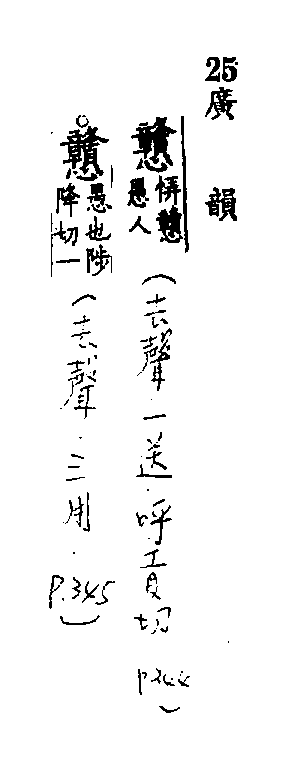 25廣韻
戇悻戇愚人(去聲.一送.呼貢切 P.344)
○戇愚也陟降切一(去聲.三用.P.345)